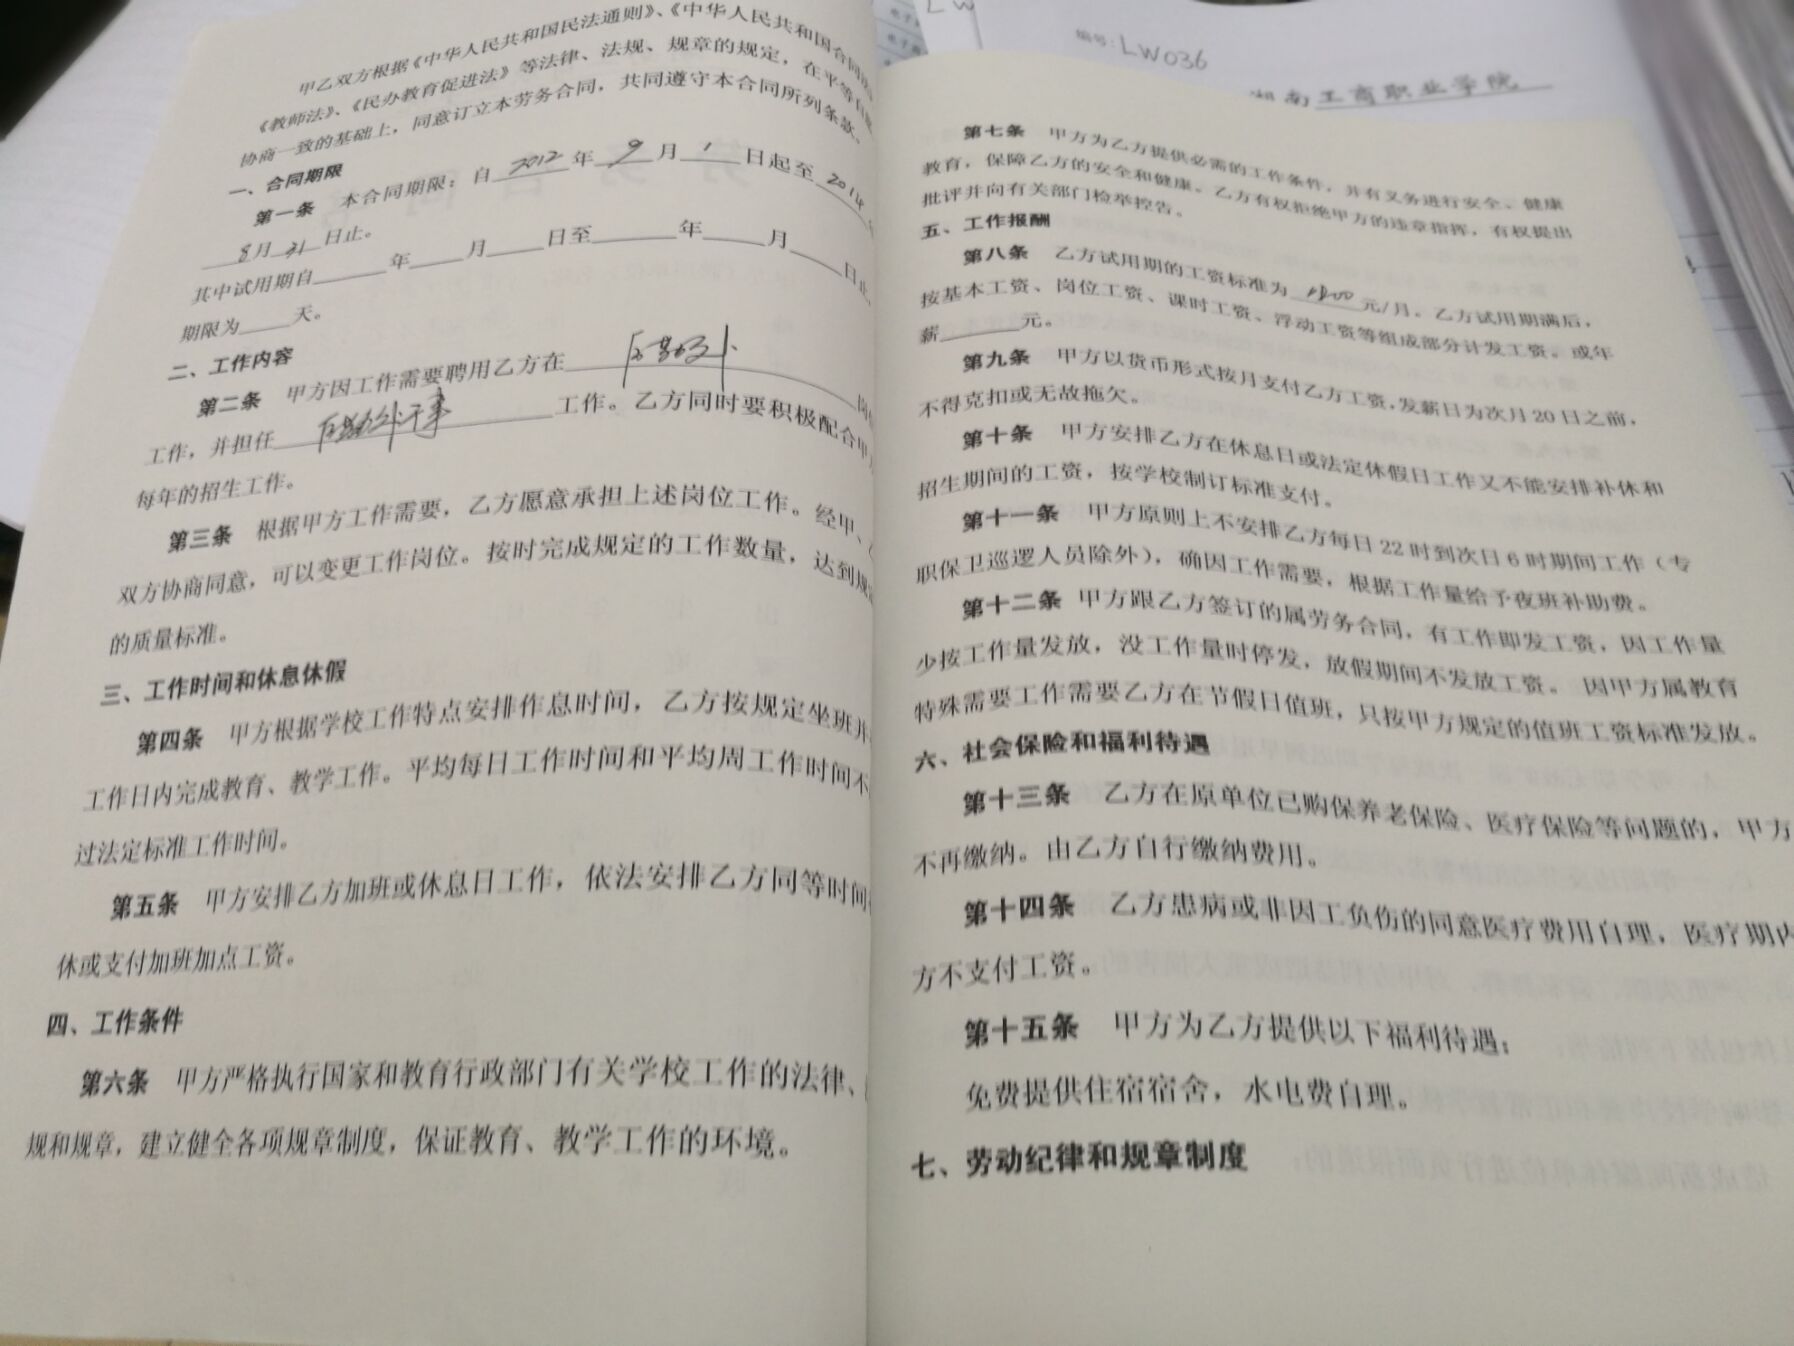 甲乙双方根据《中华人民共和国民法通则》、《中华人民共和国合同法
《教师法》、《民办教育促进法》等法律、法规、规章的规定，在平等自愿
协商一致的基础上，同意订立本劳务合同，共同遵守本合同所列条款。
一、合同期限
第一条 本合同期限：自2012年9月1日起至2014
8月31日止。
其中试用期自____年____月____日至____年____月____日止，
期限为____天。
二、工作内容
第二条 甲方因工作需要聘用乙方在
工作，并担任 干事 工作。乙方同时要积极配合甲
每年的招生工作。
第三条 根据甲方工作需要，乙方愿意承担上述岗位工作。经甲、
双方协商同意，可以变更工作岗位。按时完成规定的工作数量，达到规
的质量标准。
三、工作时间和休息休假
第四条 甲方根据学校工作特点安排作息时间，乙方按规定坐班并
工作日内完成教育、教学工作。平均每日工作时间和平均周工作时间不
过法定标准工作时间。
第五条 甲方安排乙方加班或休息日工作，依法安排乙方同等时间
休或支付加班加点工资。
四、工作条件
第六条 甲方严格执行国家和教育行政部门有关学校工作的法律、
规和规章，建立健全各项规章制度，保证教育、教学工作的环境。
编号：LW036
湖南工商职业学院
第七条 甲方为乙方提供必需的工作条件，并有义务进行安全、健康
教育，保障乙方的安全和健康。乙方有权拒绝甲方的违章指挥，有权提出
批评并向有关部门检举控告。
五、工作报酬
第八条 乙方试用期的工资标准为 元/月。乙方试用期满后，
按基本工资、岗位工资、课时工资、浮动工资等组成部分计发工资。或年
薪____元。
第九条 甲方以货币形式按月支付乙方工资，发薪日为次月20日之前，
不得克扣或无故拖欠。
第十条 甲方安排乙方在休息日或法定休假日工作又不能安排补休和
招生期间的工资，按学校制订标准支付。
第十一条 甲方原则上不安排乙方每日22时到次日6时期间工作（专
职保卫巡逻人员除外），确因工作需要，根据工作量给予夜班补助费。
第十二条 甲方跟乙方签订的属劳务合同，有工作即发工资，因工作量
少按工作量发放，没工作量时停发，放假期间不发放工资。因甲方属教育
特殊需要工作需要乙方在节假日值班，只按甲方规定的值班工资标准发放。
六、社会保险和福利待遇
第十三条 乙方在原单位已购保养老保险、医疗保险等问题的，甲方
不再缴纳。由乙方自行缴纳费用。
第十四条 乙方患病或非因工负伤的同意医疗费用自理，医疗期内
方不支付工资。
第十五条 甲方为乙方提供以下福利待遇：
免费提供住宿宿舍，水电费自理。
七、劳动纪律和规章制度